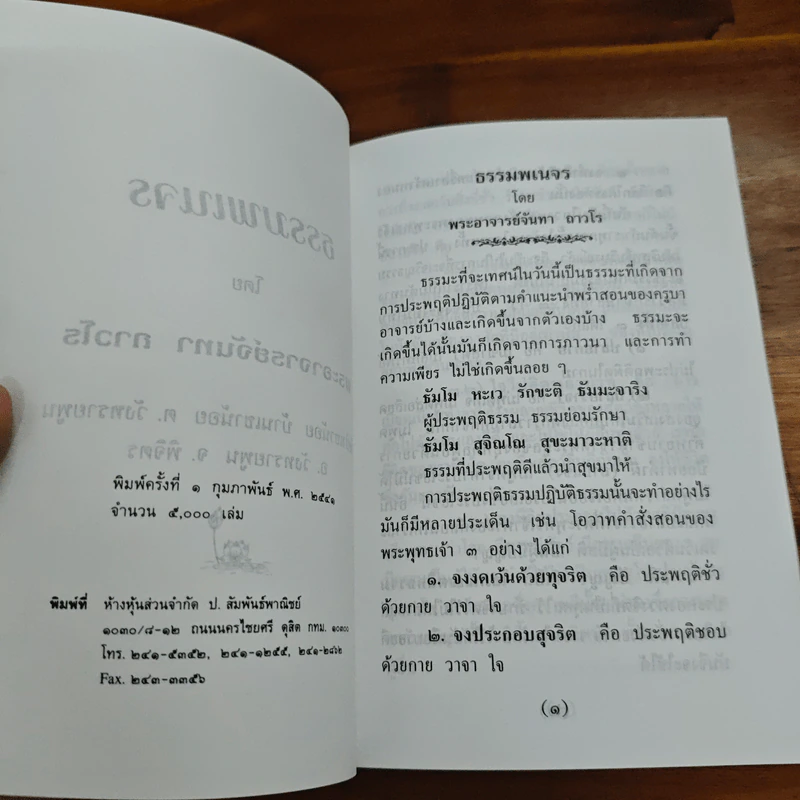 พิมพ์ครั้งที่ ๑ กุมภาพันธ์ พ.ศ. ๒๕๔๑
จำนวน ๕,๐๐๐ เล่ม
พิมพ์ที่ ห้างหุ้นส่วนจำกัด ป. สัมพันธ์พาณิชย์
๑๐๓๐/๘-๑๒ ถนนนครไชยศรี ดุสิต กทม. ๑๐๓๐๐
โทร. ๒๔๑-๕๓๕๒, ๒๔๑-๑๒๕๕, ๒๔๑-๒๘๖๒
Fax. ๒๔๓-๓๓๕๖
ธรรมพเนจร
โดย
พระอาจารย์จันทา ถาวโร
ธรรมะที่จะเทศน์ในวันนี้เป็นธรรมะที่เกิดจาก
การประพฤติปฏิบัติตามคำแนะนำพร่ำสอนของครูบา
อาจารย์บ้างและเกิดขึ้นจากตัวเองบ้าง ธรรมะจะ
เกิดขึ้นได้นั้นมันก็เกิดจากการภาวนา และการทำ
ความเพียร ไม่ใช่เกิดขึ้นลอย ๆ
ธัมโม หะเว รักขะติ ธัมมะจาริง
ผู้ประพฤติธรรม ธรรมย่อมรักษา
ธัมโม สุจิณโณ สุขะมาวะหาติ
ธรรมที่ประพฤติดีแล้วนำสุขมาให้
การประพฤติธรรมปฏิบัติธรรมนั้นจะทำอย่างไร
มันก็มีหลายประเด็น เช่น โอวาทคำสั่งสอนของ
พระพุทธเจ้า ๓ อย่าง ได้แก่
๑. จงงดเว้นด้วยทุจริต คือ ประพฤติชั่ว
ด้วยกาย วาจา ใจ
๒. จงประกอบสุจริต คือ ประพฤติชอบ
ด้วยกาย วาจา ใจ
(๑)